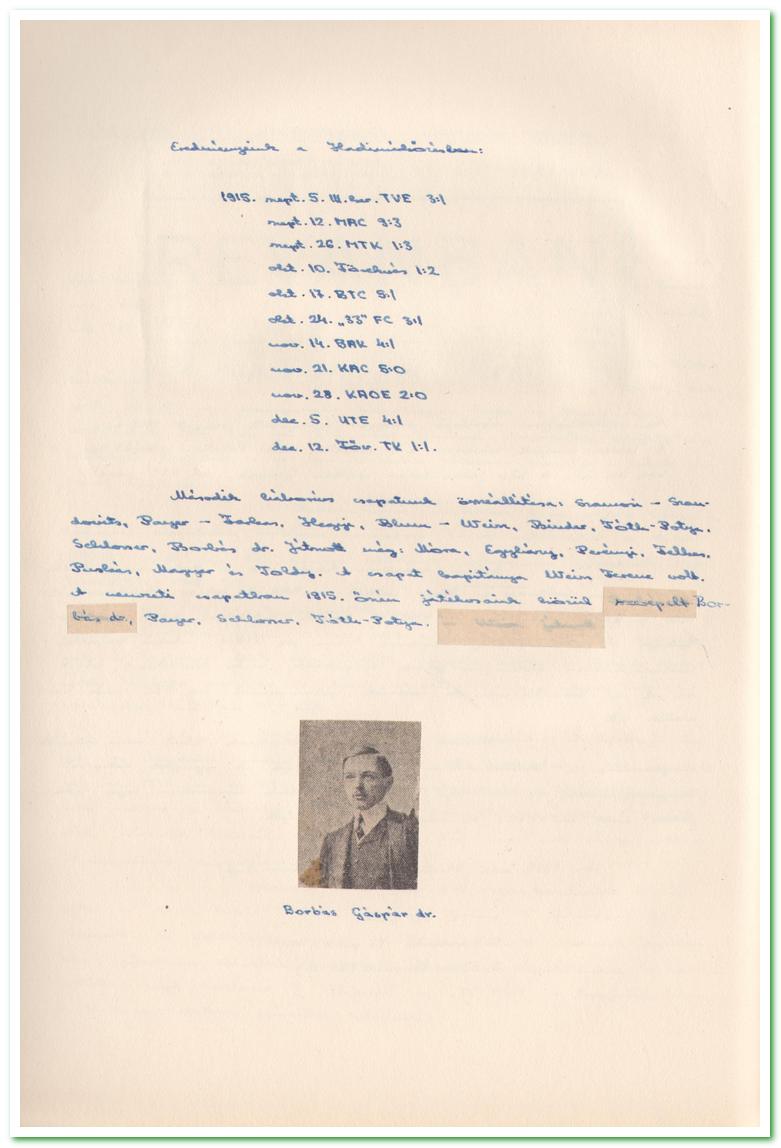 Eredményeink a Hadimérkőzésben:
1915. szept. 5. III. ker. TVE 3:1
szept. 12. MAC 3:3
szept. 26. MTK 1:3
okt. 10. Törekvés 1:2
okt. 17. BTC 5:1
okt. 24. „33" FC 3:1
nov. 14. BAK 4:1
nov. 21. KAC 5:0
nov. 28. KAOE 2:0
dec. 5. UTE 4:1
dec. 12. Föv. TK 1:1.
Második háborús csapatunk összeállítása: – Szan-
dovits, Payer – Farkas, Heggy, Blum – Weisz, Binder, Tóth-Potya,
Schlosser, Borbás dr. Játszott még: Móra, Perényi, Telkes,
Puskás, Magyar és Toldy. A csapat kapitánya Weisz Ferenc volt.
A nemzeti csapatban 1915. őszén játékosaink közül szerepelt Bor-
bás dr., Payer, Schlosser, Tóth-Potya.
Borbás Gáspár dr.